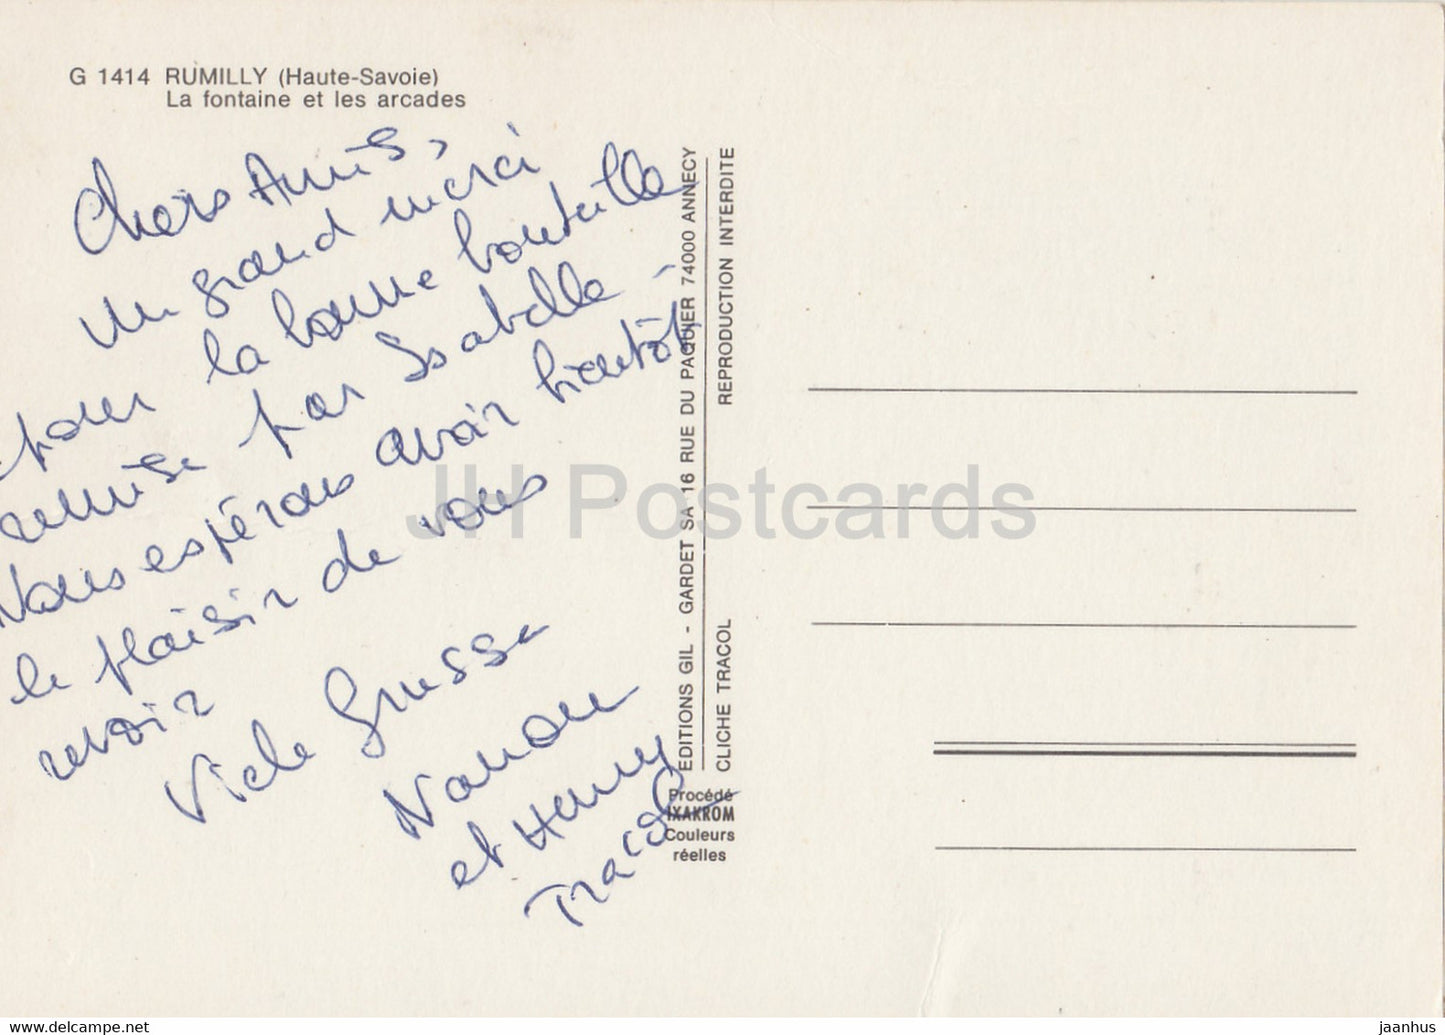 G 1414 RUMILLY (Haute-Savoie)
La fontaine et les arcades
Chers Amis,
un grand merci
pour la bonne bouteille
remise par Isabelle -
Nous espérons avoir bientôt
le plaisir de vous
revoir
Viele Grüsse
et Henry
Tracol
EDITIONS GIL - GARDET SA 16 RUE DU PAQUIER 74000 ANNECY
CLICHE TRACOL REPRODUCTION INTERDITE
Procédé
IXAKROM
Couleurs
réelles
JH Postcards
hippostcard.com
jaanhus